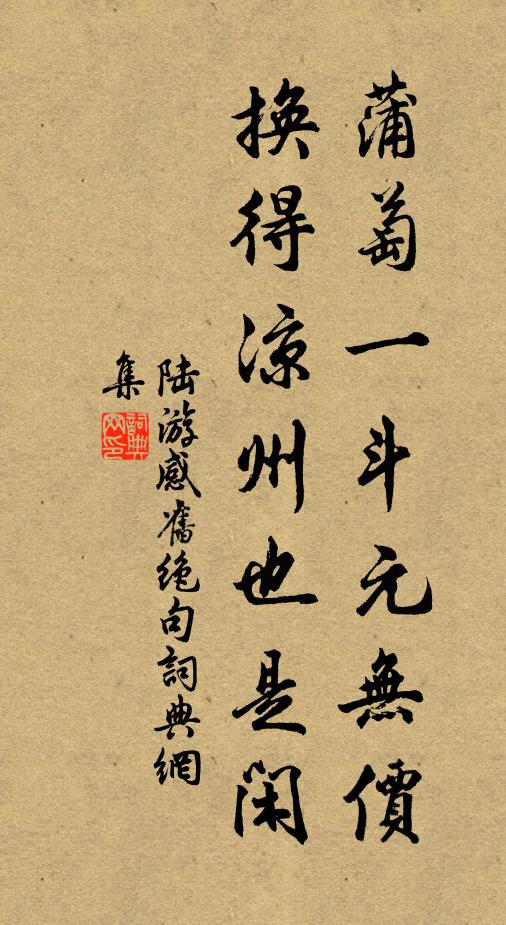 蒲萄一斗元無價
換得涼州也是閑
陆游感舊绝句詞典網
集
詞典
网印